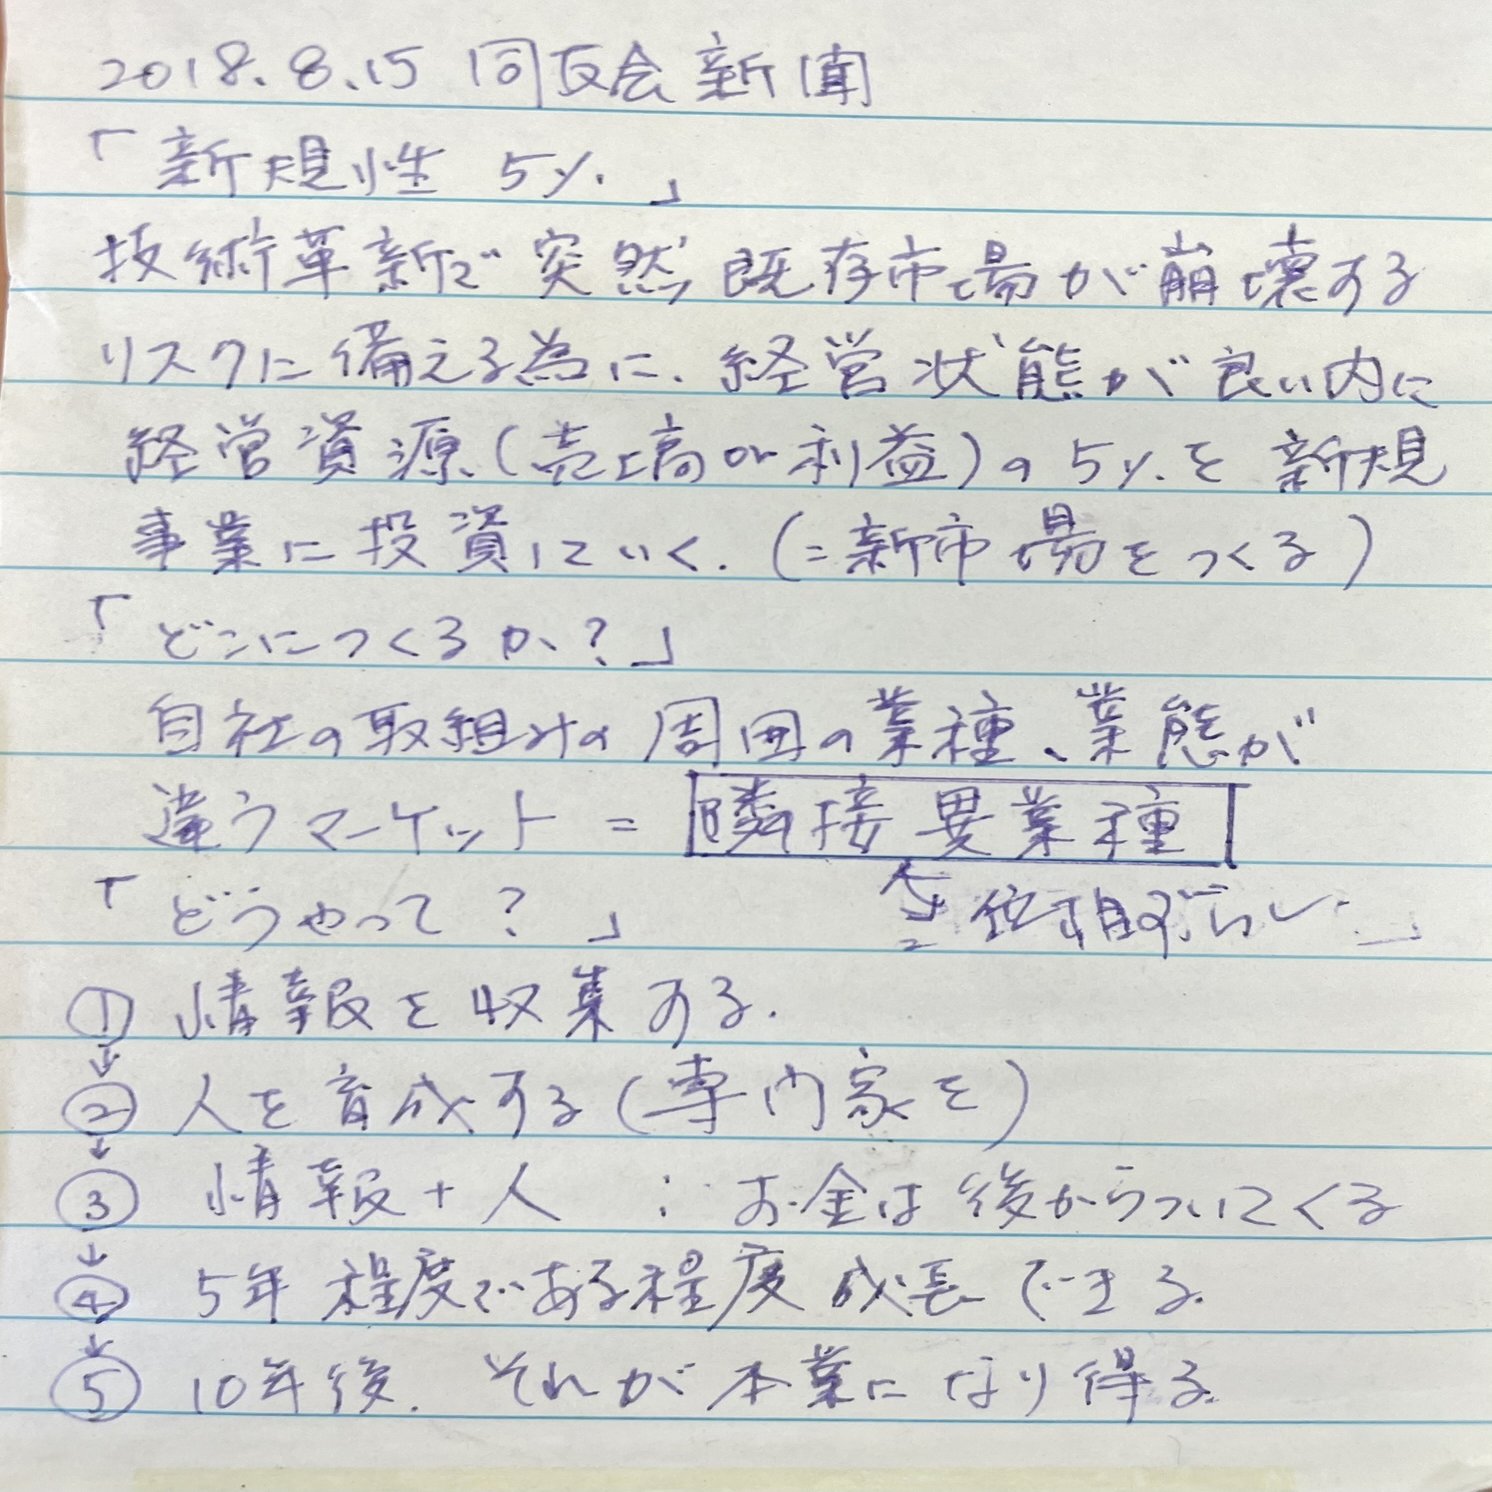 2018.8.15 同友会新聞
「新規性 5%.」
技術革新で突然、既存市場が崩壊する
リスクに備える為に、経営状態が良い内に
経営資源(売上高or利益)の5%を新規
事業に投資していく.(=新市場をつくる)
「どこにつくるか?」
自社の取組みの周囲の業種、業態が
違うマーケット = 隣接異業種
「どうやって?」
位相ずらし」
① 情報を収集する.
↓
② 人を育成する(専門家を)
↓
③ 情報+人 : お金は後からついてくる
↓
④ 5年程度である程度成長できる.
↓
⑤ 10年後. それが本業になり得る.